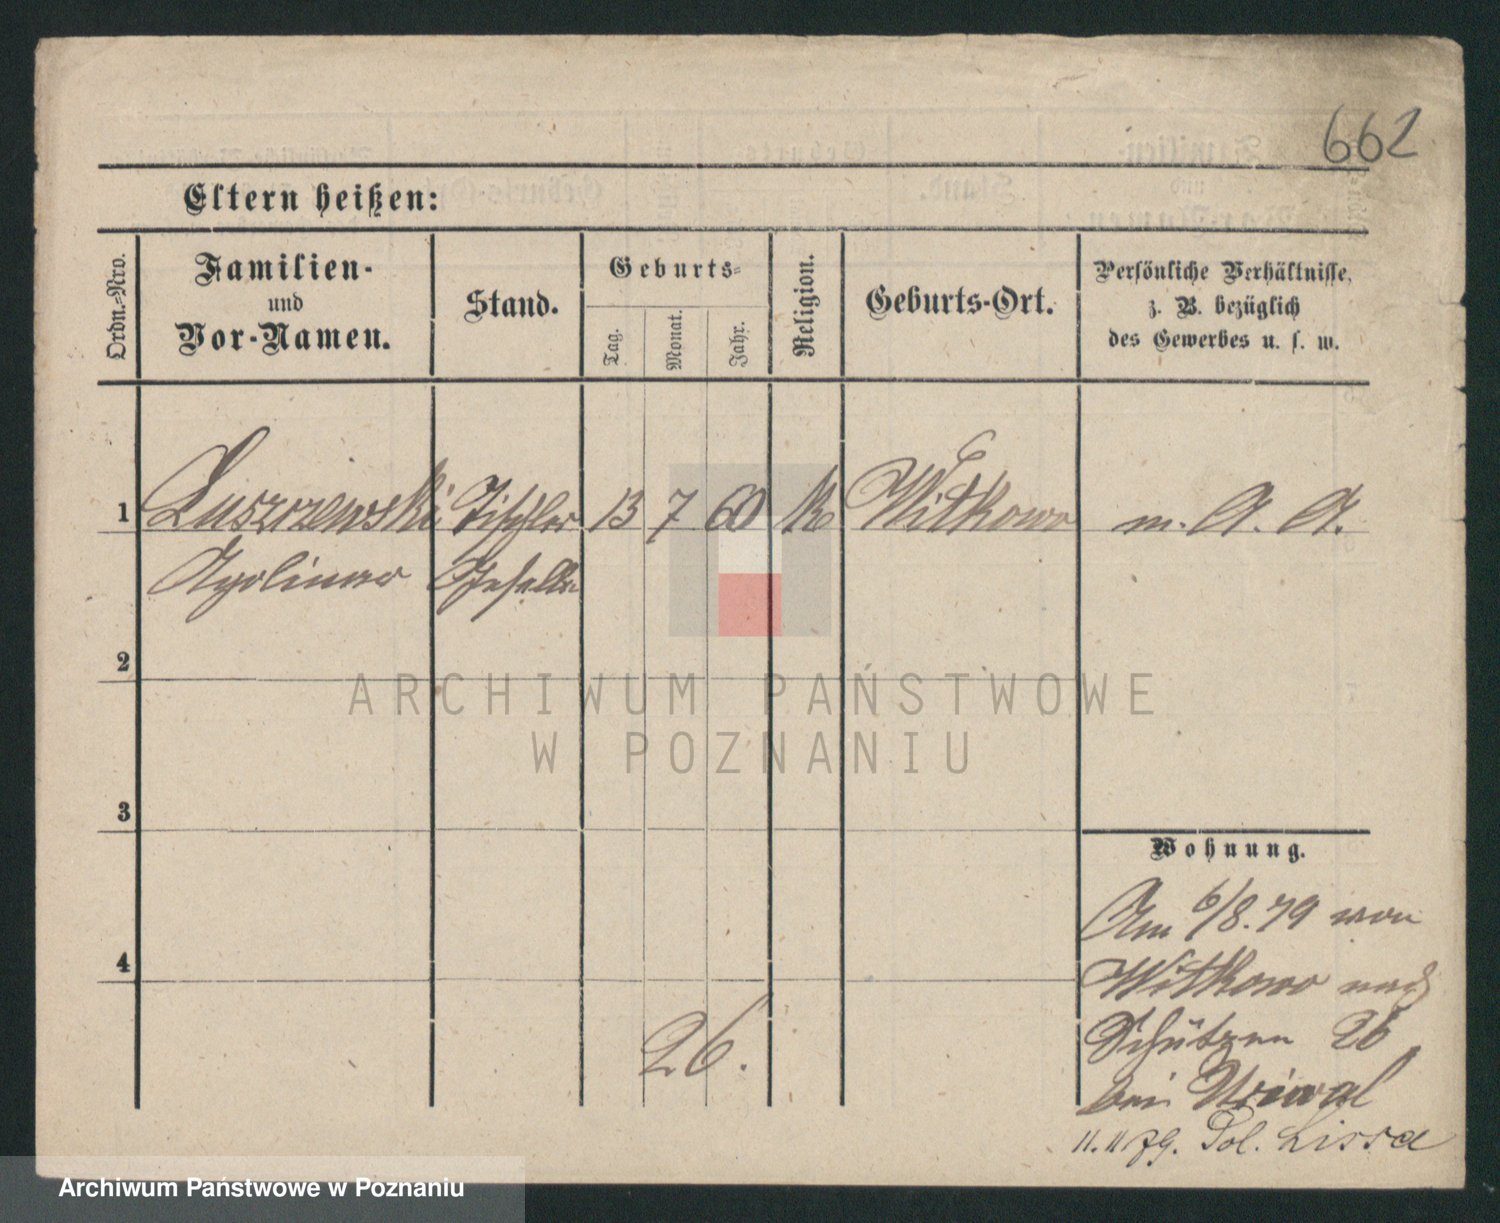 662
Eltern heißen:
Ordn.-Nro.
Familien-
und
Vor-Namen.
Stand.
Geburts-
Tag.
Monat.
Jahr.
Religion.
Geburts-Ort.
Persönliche Verhältnisse,
z. B. bezüglich
des Gewerbes u. s. w.
1 Luszczewski Tischler 13 7 60 K Witkowo m. A. A.
Apolinar Geselle
2
ARCHIWUM PAŃSTWOWE
W POZNANIU
3
Wohnung.
Am 6/8. 79 von
4
Witkowo nach
Schützen 26
26.
bei
11. 11 79. Pol. Lissa
Archiwum Państwowe w Poznaniu